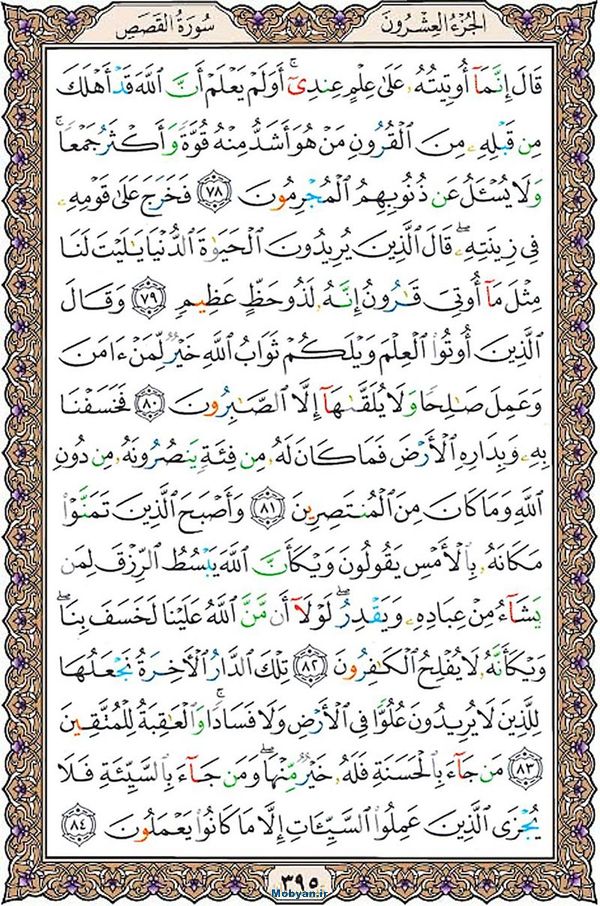 الجزء العشرون
سورة القصص
قَالَ إِنَّمَآ أُوتِيتُهُۥ عَلَىٰ عِلْمٍ عِندِىٓ ۚ أَوَلَمْ يَعْلَمْ أَنَّ ٱللَّهَ قَدْ أَهْلَكَ
مِن قَبْلِهِۦ مِنَ ٱلْقُرُونِ مَنْ هُوَ أَشَدُّ مِنْهُ قُوَّةً وَأَكْثَرُ جَمْعًا ۚ
وَلَا يُسْـَٔلُ عَن ذُنُوبِهِمُ ٱلْمُجْرِمُونَ ٧٨ فَخَرَجَ عَلَىٰ قَوْمِهِۦ
فِى زِينَتِهِۦ ۖ قَالَ ٱلَّذِينَ يُرِيدُونَ ٱلْحَيَوٰةَ ٱلدُّنْيَا يَـٰلَيْتَ لَنَا
مِثْلَ مَآ أُوتِىَ قَـٰرُونُ إِنَّهُۥ لَذُو حَظٍّ عَظِيمٍ ٧٩ وَقَالَ
ٱلَّذِينَ أُوتُوا۟ ٱلْعِلْمَ وَيْلَكُمْ ثَوَابُ ٱللَّهِ خَيْرٌ لِّمَنْ ءَامَنَ
وَعَمِلَ صَـٰلِحًا وَلَا يُلَقَّىٰهَآ إِلَّا ٱلصَّـٰبِرُونَ ٨٠ فَخَسَفْنَا
بِهِۦ وَبِدَارِهِ ٱلْأَرْضَ فَمَا كَانَ لَهُۥ مِن فِئَةٍ يَنصُرُونَهُۥ مِن دُونِ
ٱللَّهِ وَمَا كَانَ مِنَ ٱلْمُنتَصِرِينَ ٨١ وَأَصْبَحَ ٱلَّذِينَ تَمَنَّوْا۟
مَكَانَهُۥ بِٱلْأَمْسِ يَقُولُونَ وَيْكَأَنَّ ٱللَّهَ يَبْسُطُ ٱلرِّزْقَ لِمَن
يَشَآءُ مِنْ عِبَادِهِۦ وَيَقْدِرُ ۖ لَوْلَآ أَن مَّنَّ ٱللَّهُ عَلَيْنَا لَخَسَفَ بِنَا ۖ
وَيْكَأَنَّهُۥ لَا يُفْلِحُ ٱلْكَـٰفِرُونَ ٨٢ تِلْكَ ٱلدَّارُ ٱلْـَٔاخِرَةُ نَجْعَلُهَا
لِلَّذِينَ لَا يُرِيدُونَ عُلُوًّا فِى ٱلْأَرْضِ وَلَا فَسَادًا ۚ وَٱلْعَـٰقِبَةُ لِلْمُتَّقِينَ
٨٣ مَن جَآءَ بِٱلْحَسَنَةِ فَلَهُۥ خَيْرٌ مِّنْهَا ۖ وَمَن جَآءَ بِٱلسَّيِّئَةِ فَلَا
يُجْزَى ٱلَّذِينَ عَمِلُوا۟ ٱلسَّيِّـَٔاتِ إِلَّا مَا كَانُوا۟ يَعْمَلُونَ ٨٤
٣٩٥
Mobyan.ir